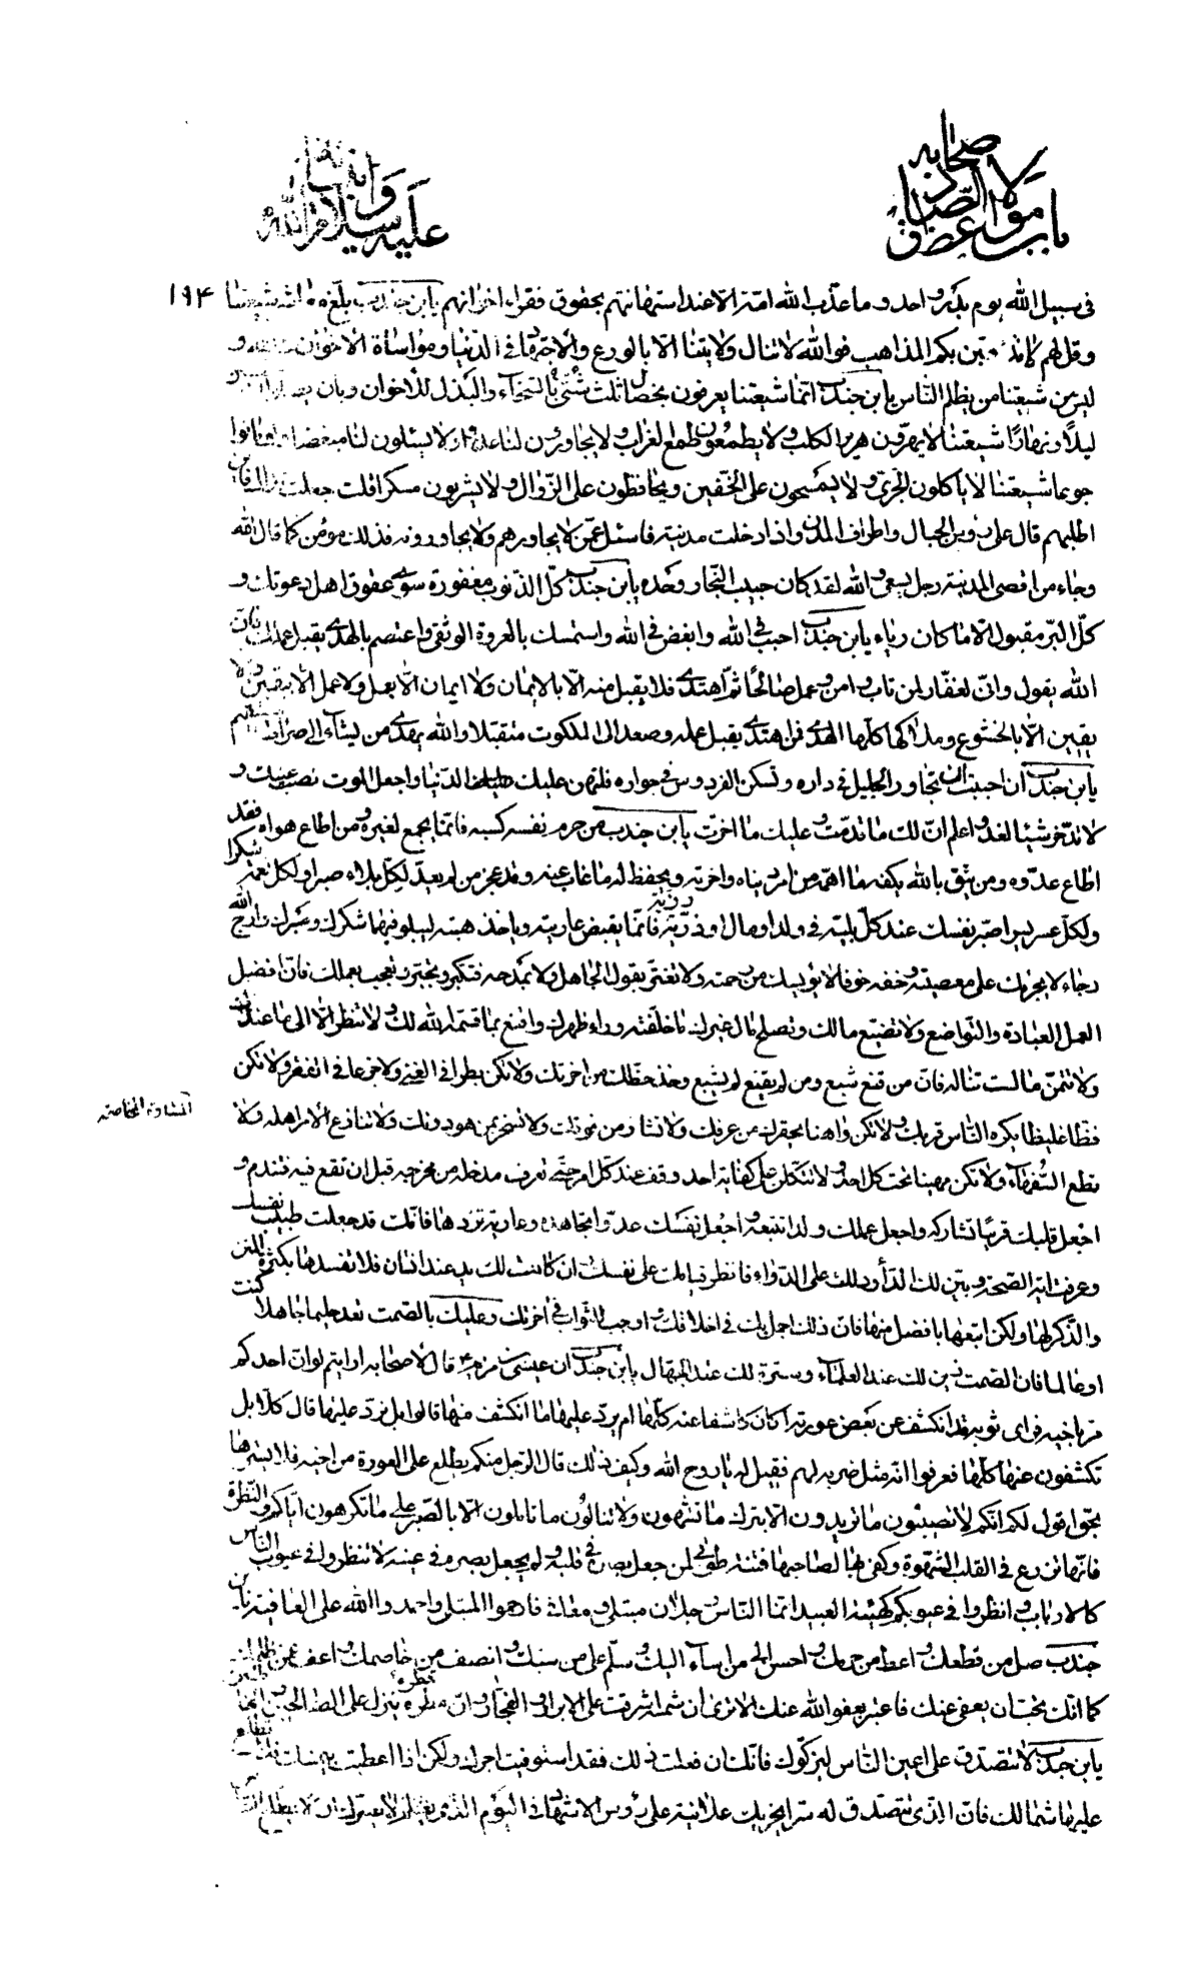 باب مواعظ الصادق
صحابه
عليه سلام الله
في سبيل الله يوم بدر واحد وما عذب الله امة الا عند استهانتهم بحقوق فقراء اخوانهم يابن جندب بلغ شيعتنا ١٩٤
وقل لهم لا تذهبن بكم المذاهب فوالله لا تنال ولايتنا الا بالورع والاجتهاد في الدنيا ومواساة الاخوان في الله و
ليس من شيعتنا من يظلم الناس يابن جندب انما شيعتنا يعرفون بخصال ثلث شتى بالسخاء والبذل للاخوان وبان
ليلا ونهارا شيعتنا لا يهرون هرير الكلب ولا يطمعون طمع الغراب ولا يجاورون لنا عدوا ولا يسئلون لنا مبغضا ولو ماتوا
جوعا شيعتنا لا ياكلون الجري ولا يمسحون على الخفين ويحافظون على الزوال ولا يشربون مسكرا قلت جعلت فداك فاين
اطلبهم قال على رؤس الجبال واطراف المدن واذا دخلت مدينة فاسئل عمن لا يجاورهم ولا يجاورونه فذلك مؤمن كما قال الله
وجاء من اقصى المدينة رجل يسعى والله لقد كان حبيب النجار وحده يابن جندب كل الذنوب مغفورة سوى عقوق اهل دعوتك و
كل البر مقبول الا ما كان رياء يابن جندب احبب في الله وابغض في الله واستمسك بالعروة الوثقى واعتصم بالهدى يقبل عملك فان
الله يقول واني لغفار لمن تاب وامن وعمل صالحا ثم اهتدى فلا يقبل منه الا بالايمان ولا ايمان الا بعمل ولا عمل الا بيقين ولا
يقين الا بالخشوع وملاكها كلها الهدى فمن اهتدى يقبل عمله وصعد الى الملكوت متقبلا والله يهدي من يشاء الى صراط مستقيم
يابن جندب ان احببت ان تجاور الجليل في داره وتسكن الفردوس في جواره فلتهن عليك الدنيا واجعل الموت نصب عينك و
لا تدخر شيئا لغد واعلم ان لك ما قدمت وعليك ما اخرت يابن جندب من حرم نفسه كسبه فانما يجمع لغيره ومن اطاع هواه فقد
اطاع عدوه ومن يثق بالله يكفه ما اهمه من امر دنياه واخرته ويحفظ له ما غاب عنه وقد عجز من لم يعد لكل بلاء صبرا ولكل نعمة شكرا
ولكل عسر يسرا صبر نفسك عند كل بلية في ولد او مال او ذرية فانما يقبض عاريته وياخذ هبته ليبلو فيهما شكرك وصبرك وارج الله
رجاء لا يجريك على معصيته وخفه خوفا لا يؤيسك من رحمته ولا تغتر بقول الجاهل ولا بمدحه فتكبر وتجبر وتعجب بعملك فان افضل
العمل العبادة والتواضع ولا تضيع مالك وتصلح مال غيرك ما خلفته وراء ظهرك واقنع بما قسمه الله لك ولا تنظر الا الى ما عندك
ولا تتمن ما لست تناله فان من قنع شبع ومن لم يقنع لم يشبع وخذ حظك من اخرتك ولا تكن بطرا في الغنى ولا جزعا في الفقر ولا تكن
المشارة المخاصمة
فظا غليظا يكره الناس قربك ولا تكن واهنا يحقرك من عرفك ولا تشار من فوقك ولا تسخر بمن هو دونك ولا تنازع الامر اهله ولا
تطع السفهاء ولا تكن مهينا تحت كل احد ولا تتكلن على كفاية احد وقف عند كل امر حتى تعرف مدخله من مخرجه قبل ان تقع فيه فتندم و
اجعل قلبك قريبا تشاركه واجعل عملك والدا تتبعه واجعل نفسك عدوا تجاهده وعارية تردها فانك قد جعلت طبيب نفسك
وعرفت اية الصحة وبين لك الداء ودللت على الدواء فانظر قيامك على نفسك ان كانت لك يد عند انسان فلا تفسدها بكثرة المن
والذكر لها ولكن اتبعها بافضل منها فان ذلك اجمل بك في اخلاقك واوجب للثواب في اخرتك وعليك بالصمت تعد حليما جاهلا كنت
او عالما فان الصمت زين لك عند العلماء وسترة لك عند الجهال يابن جندب ان عيسى بن مريم قال لاصحابه ارايتم لو ان احدكم
مر باخيه فراى ثوبه قد انكشف عن بعض عورته اكان كاشفا عنها كلها ام يرد عليها ما انكشف منها قالوا بل نرد عليها قال كلا بل
تكشفون عنها كلها فعرفوا انه مثل ضربه لهم فقيل له يا روح الله وكيف ذلك قال الرجل منكم يطلع على العورة من اخيه فلا يسترها
بحق اقول لكم انكم لا تصيبون ما تريدون الا بترك ما تشتهون ولا تنالون ما تاملون الا بالصبر على ما تكرهون اياكم والنظرة
فانها تزرع في القلب الشهوة وكفى بها لصاحبها فتنة طوبى لمن جعل بصره في قلبه ولم يجعل بصره في عينه لا تنظروا في عيوب الناس
كالارباب وانظروا في عيوبكم كهيئة العبيد انما الناس رجلان مبتلى ومعافى فارحموا المبتلى واحمدوا الله على العافية يابن
جندب صل من قطعك واعط من حرمك واحسن الى من اساء اليك وسلم على من سبك وانصف من خاصمك واعف عمن ظلمك
كما انك تحب ان يعفى عنك فاعتبر بعفو الله عنك الا ترى ان شمسه اشرقت على الابرار والفجار وان مطره ينزل على الصالحين
يابن جندب لا تتصدق على اعين الناس ليزكوك فانك ان فعلت ذلك فقد استوفيت اجرك ولكن اذا اعطيت بيمينك فلا تطلع
عليها شمالك فان الذي تتصدق له سرا يجزيك علانية على رؤس الاشهاد في اليوم الذي